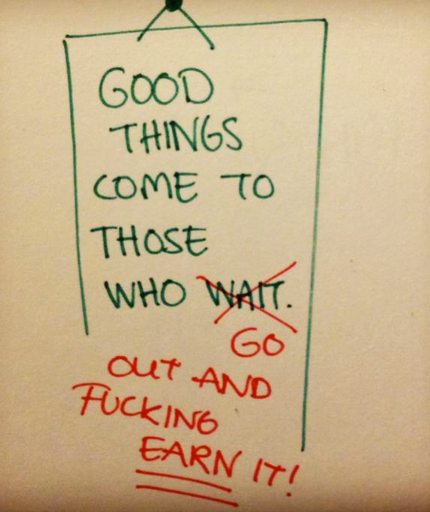 GOOD
THINGS
COME TO
THOSE
WHO WAIT.
GO
OUT AND
FUCKING
EARN IT!